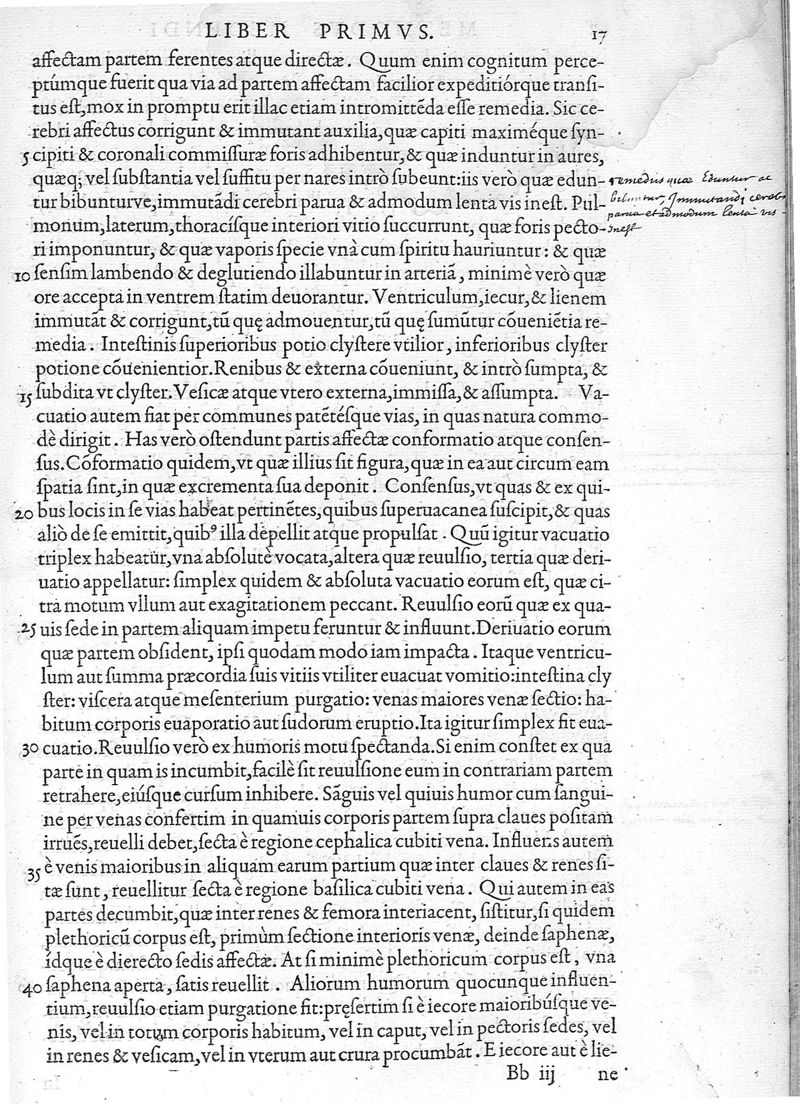 LIBER PRIMVS. 17
affectam partem ferentes atque directæ. Quum enim cognitum perce-
ptúmque fuerit qua via ad partem affectam facilior expeditiórque transi-
tus est, mox in promptu erit illac etiam intromittēda esse remedia. Sic ce-
rebri affectus corrigunt & immutant auxilia, quæ capiti maximéque syn-
5 cipiti & coronali commissuræ foris adhibentur, & quæ induntur in aures,
quæq; vel substantia vel suffitu per nares intrò subeunt: iis verò quæ edun-
tur bibunturve, immutādi cerebri parua & admodum lenta vis inest. Pul-
monum, laterum, thoracísque interiori vitio succurrunt, quæ foris pecto-
ri imponuntur, & quæ vaporis specie vnà cum spiritu hauriuntur: & quæ
10 sensim lambendo & deglutiendo illabuntur in arteriā, minimè verò quæ
ore accepta in ventrem statim deuorantur. Ventriculum, iecur, & lienem
immutāt & corrigunt, tū quę admouentur, tū quę sumūtur cōueniētia re-
media. Intestinis superioribus potio clystere vtilior, inferioribus clyster
potione cōuenientior. Renibus & externa cōueniunt, & intrò sumpta, &
15 subdita vt clyster. Vesicæ atque vtero externa, immissa, & assumpta. Va-
cuatio autem fiat per communes patētésque vias, in quas natura commo-
dè dirigit. Has verò ostendunt partis affectæ conformatio atque consen-
sus. Cōformatio quidem, vt quæ illius sit figura, quæ in ea aut circum eam
spatia sint, in quæ excrementa sua deponit. Consensus, vt quas & ex qui-
20 bus locis in se vias habeat pertinētes, quibus superuacanea suscipit, & quas
aliò de se emittit, quibꝰ illa depellit atque propulsat. Quū igitur vacuatio
triplex habeatur, vna absolutè vocata, altera quæ reuulsio, tertia quæ deri-
uatio appellatur: simplex quidem & absoluta vacuatio eorum est, quæ ci-
tra motum vllum aut exagitationem peccant. Reuulsio eorū quæ ex qua-
25 uis sede in partem aliquam impetu feruntur & influunt. Deriuatio eorum
quæ partem obsident, ipsi quodam modo iam impacta. Itaque ventricu-
lum aut summa præcordia suis vitiis vtiliter euacuat vomitio: intestina cly
ster: viscera atque mesenterium purgatio: venas maiores venæ sectio: ha-
bitum corporis euaporatio aut sudorum eruptio. Ita igitur simplex fit eua-
30 cuatio. Reuulsio verò ex humoris motu spectanda. Si enim constet ex qua
parte in quam is incumbit, facilè fit reuulsione eum in contrariam partem
retrahere, eiúsque cursum inhibere. Sāguis vel quiuis humor cum sangui-
ne per venas confertim in quamuis corporis partem supra claues positam
irruēs, reuelli debet, secta è regione cephalica cubiti vena. Influens autem
35 è venis maioribus in aliquam earum partium quæ inter claues & renes si-
tæ sunt, reuellitur secta è regione basilica cubiti vena. Qui autem in eas
partes decumbit, quæ inter renes & femora interiacent, sistitur, si quidem
plethoricū corpus est, primùm sectione interioris venæ, deinde saphenæ,
ídque è dierecto sedis affectæ. At si minimè plethoricum corpus est, vna
40 saphena aperta, satis reuellit. Aliorum humorum quocunque influen-
tium, reuulsio etiam purgatione fit: pręsertim si è iecore maioribúsque ve-
nis, vel in totum corporis habitum, vel in caput, vel in pectoris sedes, vel
in renes & vesicam, vel in vterum aut crura procumbāt. E iecore aut è lie-
Bb iij ne
remediis quæ Eduntur ac
bibuntur, Immutandi cereb
parua et admodum lenta vis
inest